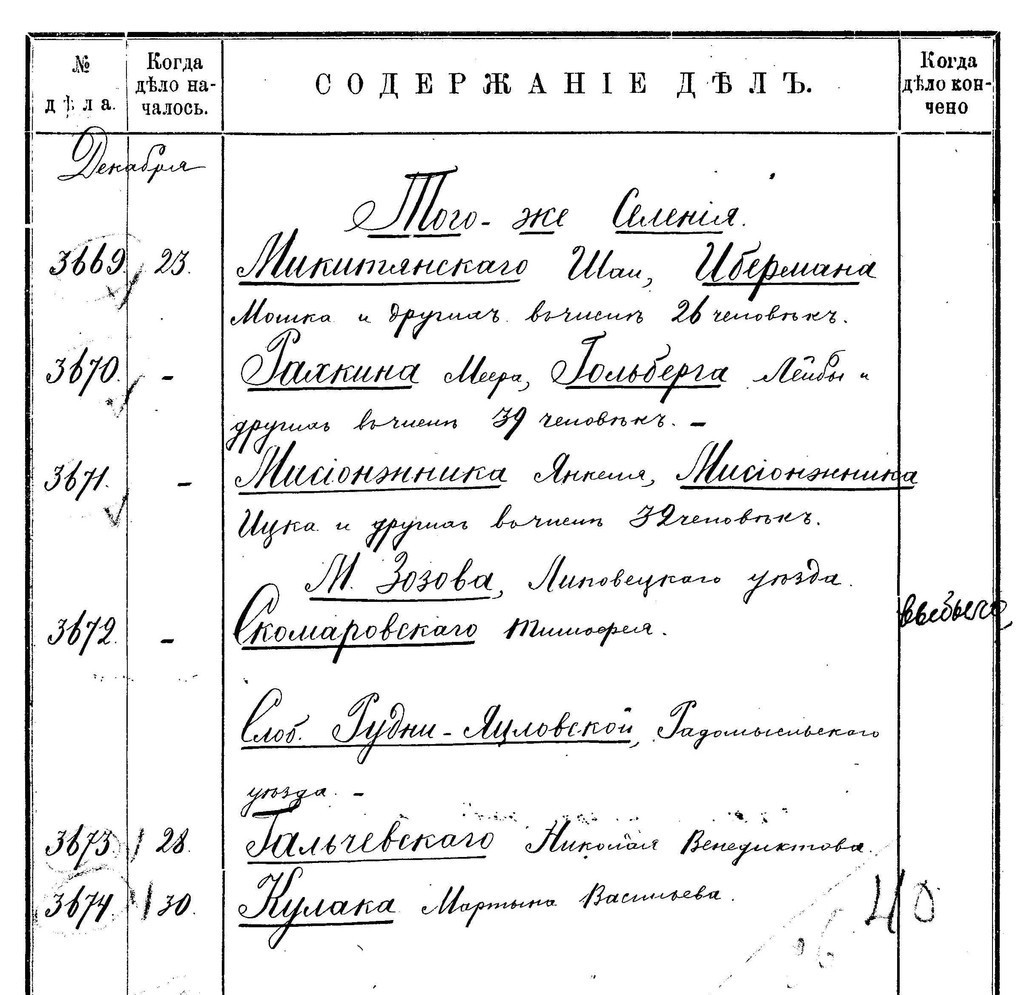 № дѣла.
Когда дѣло началось.
СОДЕРЖАНІЕ ДѢЛЪ.
Когда дѣло кончено
Декабря
Того-же Селенія.
3669. 23. Микитянскаго Шаи, Ибермана
Мошка и другихъ въ числѣ 26 человѣкъ.
3670. - Рахкина Меера, Гольберга Лейбы и
другихъ въ числѣ 39 человѣкъ. -
3671. - Мисіонжника Янкеля, Мисіонжника
Ицка и другихъ въ числѣ 32 человѣкъ.
М. Зозова, Липовецкаго уѣзда.
3672. - Скомаровскаго Тимофея.
Слоб. Рудни-Яцловской, Радомысльскаго
уѣзда. -
3673. 28. Гальчевскаго Николая Венедиктова.
3674. 30. Кулака Мартына Васильева.
40